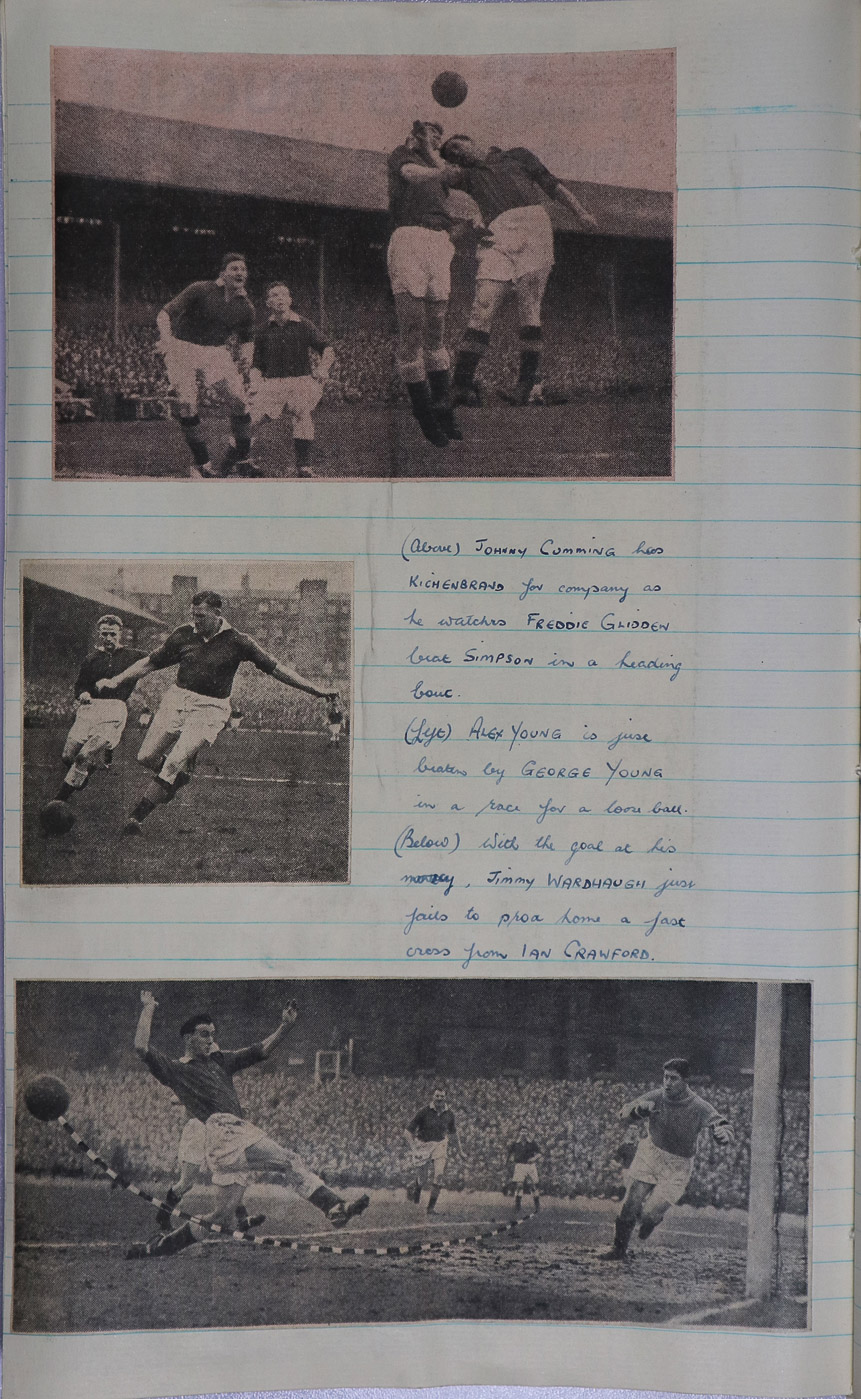 (Above) JOHNNY CUMMING has
KICHENBRAND for company as
he watches FREDDIE GLIDDEN
beat SIMPSON in a heading
bout.
(Left) ALEX YOUNG is just
beaten by GEORGE YOUNG
in a race for a loose ball.
(Below) With the goal at his
mercy, JIMMY WARDHAUGH just
fails to prod home a fast
cross from IAN CRAWFORD.